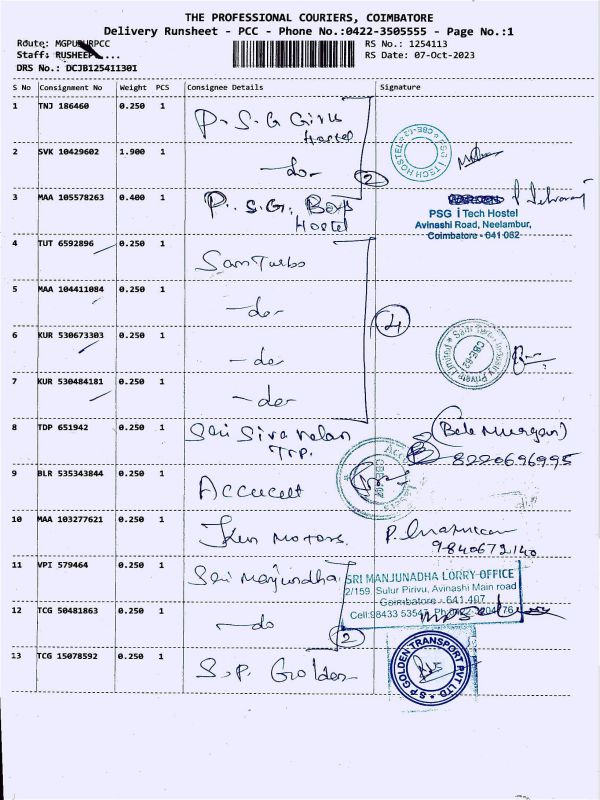 THE PROFESSIONAL COURIERS, COIMBATORE
Delivery Runsheet - PCC - Phone No.:0422-3505555 - Page No.:1
Route: MGPUDURPCC
RS No.: 1254113
Staff: RUSHEEP ....
RS Date: 07-Oct-2023
DRS No.: DCJB1254113OI
S No Consignment No Weight PCS Consignee Details Signature
1 TNJ 186460 0.250 1 P.S.G Girls Hostel
PSG i TECH HOSTEL CBE-62
2 SVK 10429602 1.900 1 -do-
2
3 MAA 105578263 0.400 1 P.S.G. Boys Hostel
PSG i Tech Hostel
Avinashi Road, Neelambur,
Coimbatore - 641 062
4 TUT 6592896 0.250 1 Sam Turbo
5 MAA 104411084 0.250 1 -do-
4
6 KUR 530673303 0.250 1 -do-
Sam Turbo Industry Private Limited CBE-62
7 KUR 530484181 0.250 1 -do-
8 TDP 651942 0.250 1 Sri Siva
(Bala Murugan)
8220696995
9 BLR 535343844 0.250 1 Accucelt
10 MAA 103277621 0.250 1 Motors.
9840672140
11 VPI 579464 0.250 1 Sri Manjundha
SRI MANJUNADHA LORRY OFFICE
2/159, Sulur Pirivu, Avinashi Main road
Coimbatore - 641 407
12 TCG 50481863 0.250 1 -do
2
13 TCG 15078592 0.250 1 S.P. Golden
S P GOLDEN TRANSPORT PVT LTD